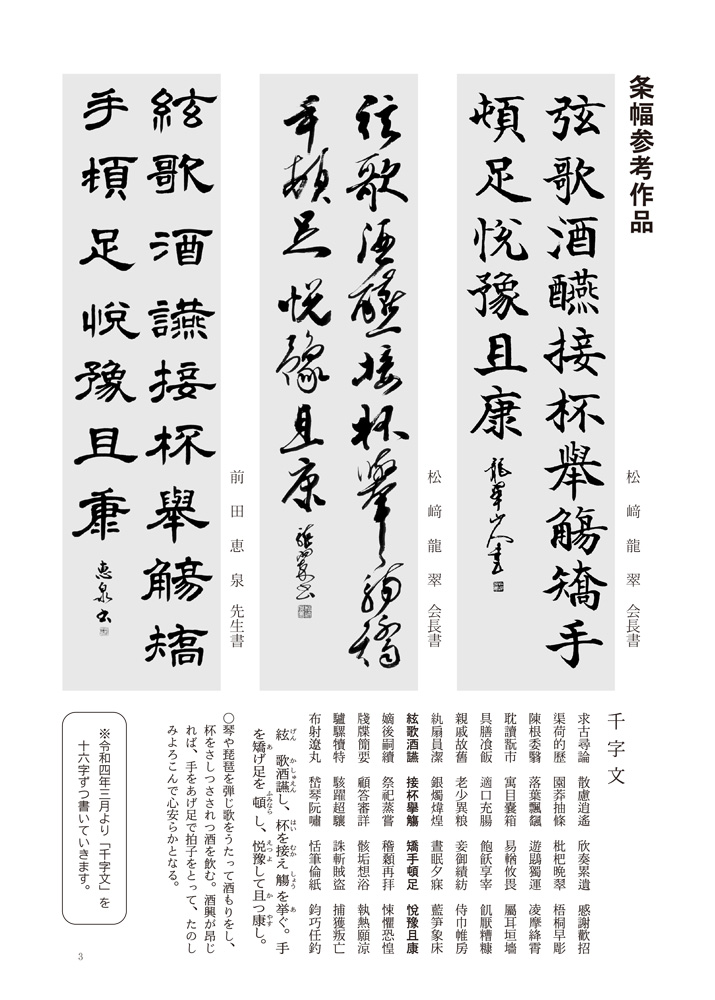 条幅参考作品
松﨑龍翠 会長書
弦歌酒醼接杯舉觴矯手
頓足悦豫且康 龍翠山人書
松﨑龍翠 会長書
弦歌酒醼接杯舉觴矯
手頓足悦豫且康
前田恵泉 先生書
絃歌酒讌接杯舉觴矯
手頓足悦豫且康 恵泉書
千字文
求古尋論 散慮逍遙 欣奏累遣 慼謝歡招
渠荷的歴 園莽抽條 枇杷晩翠 梧桐早彫
陳根委翳 落葉飄颻 遊鵾獨運 凌摩絳霄
耽讀翫市 寓目囊箱 易輶攸畏 屬耳垣墻
具膳飡飯 適口充腸 飽飫享宰 飢厭糟糠
親戚故舊 老少異粮 妾御績紡 侍巾帷房
紈扇員潔 銀燭煒煌 晝眠夕寐 藍笋象床
絃歌酒讌 接杯擧觴 矯手頓足 悅豫且康
嫡後嗣續 祭祀蒸嘗 稽顙再拜 悚懼恐惶
牋牒簡要 顧答審詳 骸垢想浴 執熱願涼
驢騾犢特 駭躍超驤 誅斬賊盗 捕獲叛亡
布射遼丸 嵆琴阮嘯 恬筆倫紙 鈞巧任釣
絃歌酒讌し、杯を接え觴を挙ぐ。手
を矯げ足を頓し、悦豫して且つ康し。
〇琴や琵琶を弾じ歌をうたって酒もりをし、
杯をさしつさされつ酒を飲む。酒興が昂じ
れば、手をあげ足で拍子をとって、たのし
みよろこんで心安らかとなる。
※令和四年三月より「千字文」を
十六字ずつ書いていきます。
3